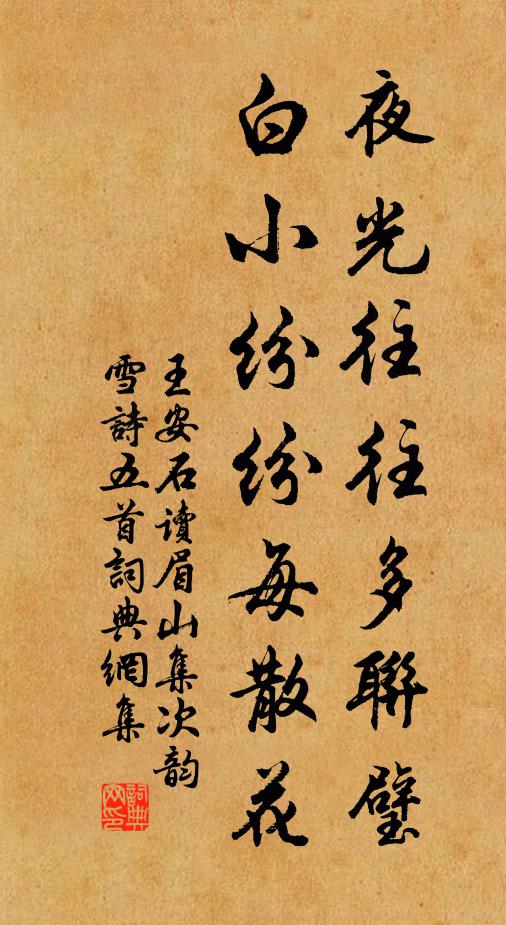 夜光往往多聯璧
白小紛紛每散花
王安石读眉山集次韵
雪詩五首詞典網集
詞典
网印